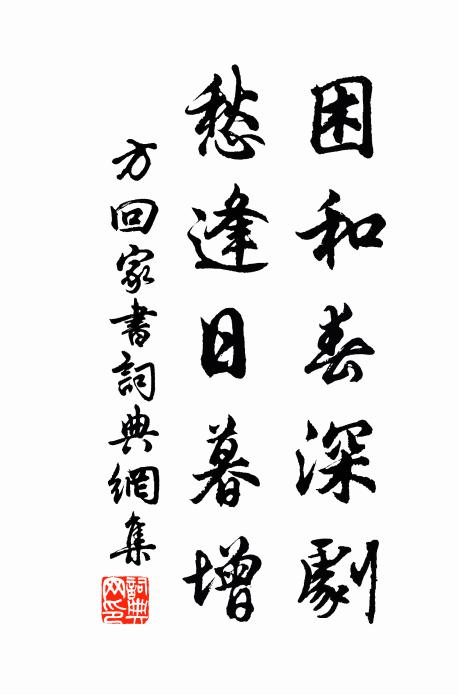 困和春深劇
愁逢日暮增
方回家書詞典網集
詞典